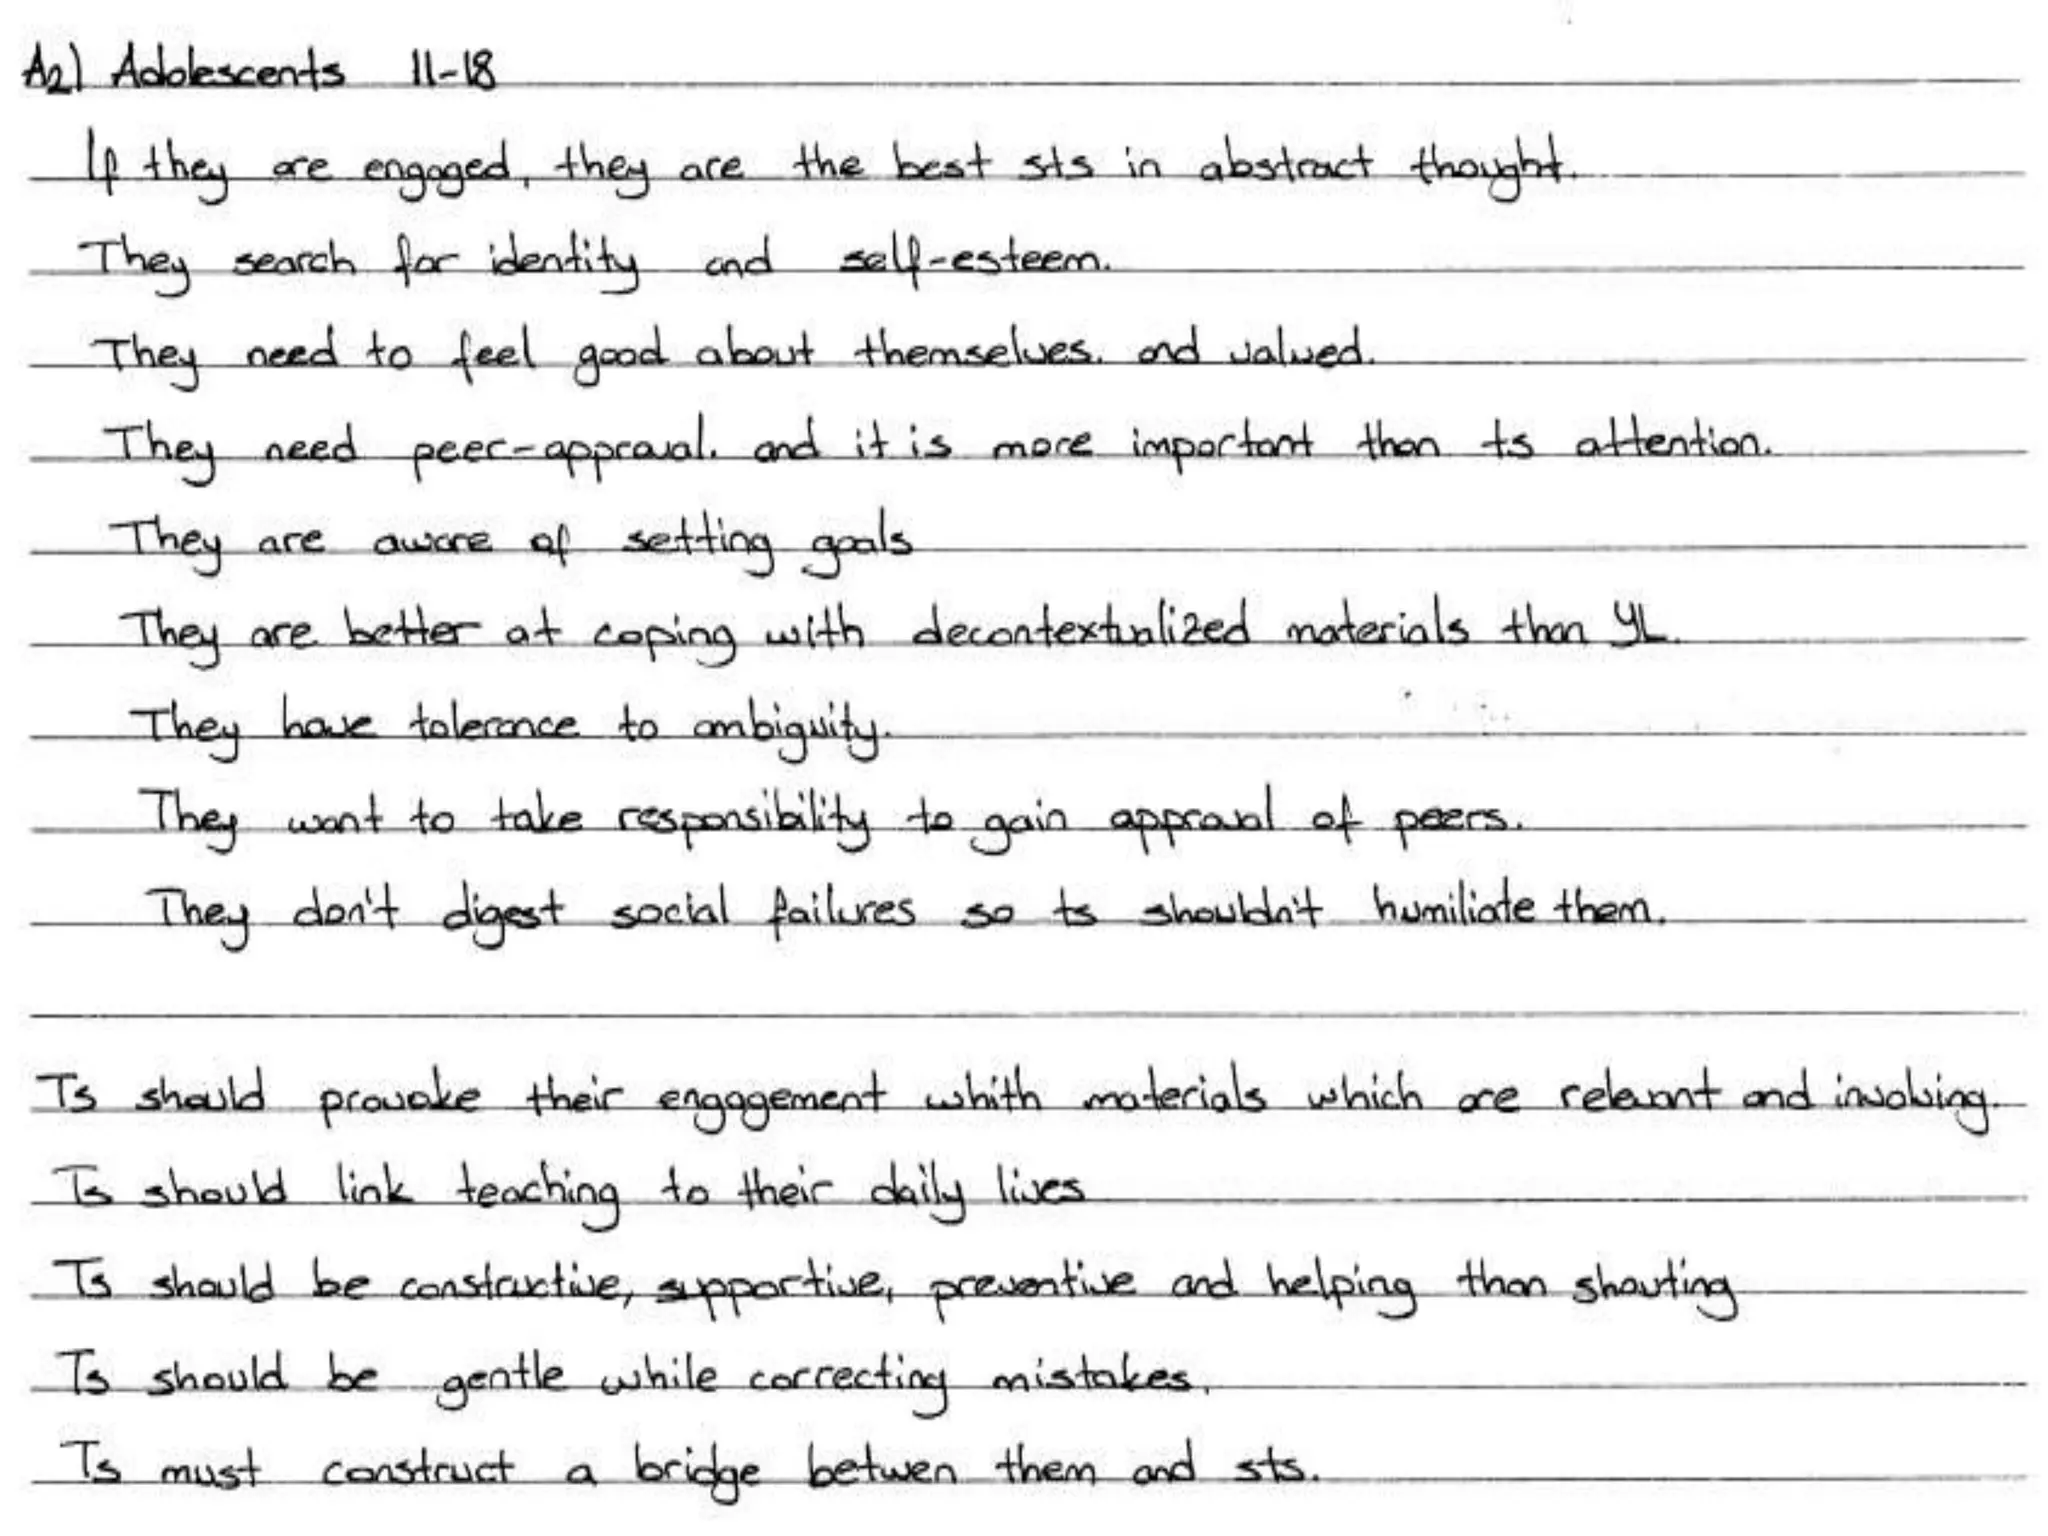 A2) Adolescents 11-18
If they are engaged, they are the best sts in abstract thought.
They search for identity and self-esteem.
They need to feel good about themselves. and valued.
They need peer-approval. and it is more important than ts attention.
They are aware of setting goals
They are better at coping with decontextualized materials than YL.
They have tolerance to ambiguity.
They want to take responsibility to gain approval of peers.
They don't digest social failures so ts shouldn't humiliate them.
Ts should provoke their engagement whith materials which are relevant and involving.
Ts should link teaching to their daily lives
Ts should be constructive, supportive, preventive and helping than shouting
Ts should be gentle while correcting mistakes.
Ts must construct a bridge betwen them and sts.